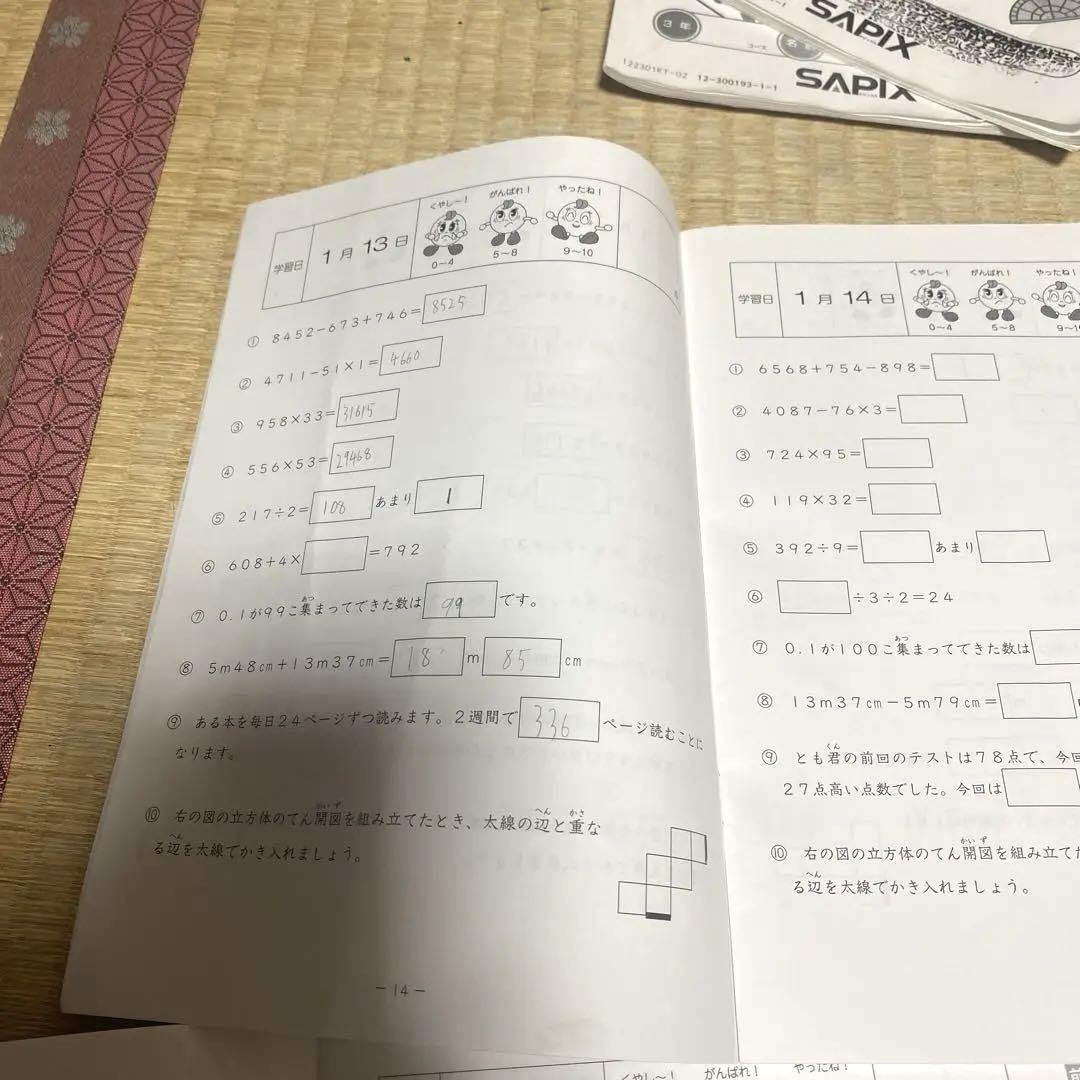 3年
コース
名前
122301KT-02 12-300193-1-1
SAPIX
SAPIX
学習日
1月13日
くやし〜!
0〜4
がんばれ!
5〜8
やったね!
9〜10
① 8452−673+746=8525
② 4711−51×1=4660
③ 958×33=31615
④ 556×53=29468
⑤ 217÷2=108 あまり 1
⑥ 608+4× =792
⑦ 0.1が99こ集まってできた数は 99 です。
⑧ 5m48cm+13m37cm=18 m 85 cm
⑨ ある本を毎日24ページずつ読みます。2週間で 336 ページ読むことに
なります。
⑩ 右の図の立方体のてん開図を組み立てたとき、太線の辺と重な
る辺を太線でかき入れましょう。
− 14 −
学習日
1月14日
くやし〜!
0〜4
がんばれ!
5〜8
やったね!
① 6568+754−898=
② 4087−76×3=
③ 724×95=
④ 119×32=
⑤ 392÷9= あまり
⑥ ÷3÷2=24
⑦ 0.1が100こ集まってできた数は
⑧ 13m37cm−5m79cm=
⑨ とも君の前回のテストは78点で、今回
27点高い点数でした。今回は
⑩ 右の図の立方体のてん開図を組み立てた
る辺を太線でかき入れましょう。
くやし〜!
がんばれ!
やったね!